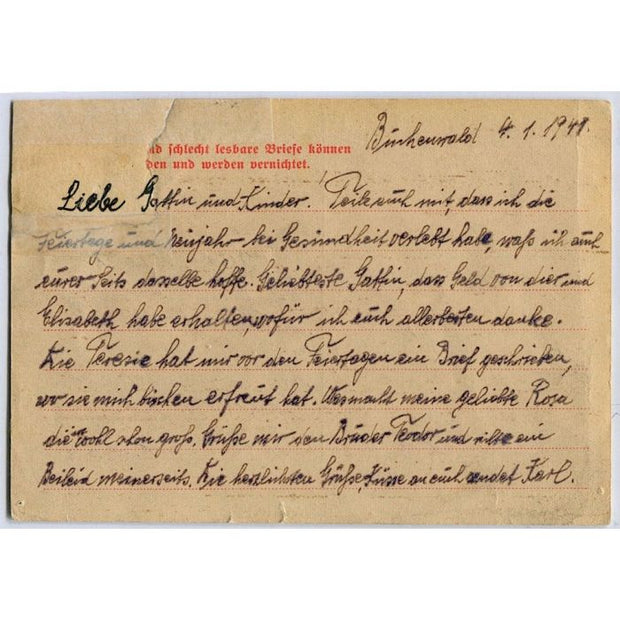 Buchenwald 4.1.1941.
nd schlecht lesbare Briefe können
den und werden vernichtet.
Liebe Gattin und Kinder! Teile euch mit, dass ich die
Feiertage und Neujahr bei Gesundheit verlebt habe, wass ich auch
eurer Seits dasselbe hoffe. Geliebteste Gattin, das Geld von dier und
Elisabeth habe erhalten, wofür ich euch allerbesten danke.
Die Teresie hat mir vor den Feiertagen ein Brief geschrieben,
wo sie mich bischen erfreut hat. Was macht meine geliebte Rosa
die ist wohl schon gross. Grüsse mir den Bruder Teodor und ein
Beileid meinerseits. Die herzlichten Grüsse, Küsse an euch endet Karl.